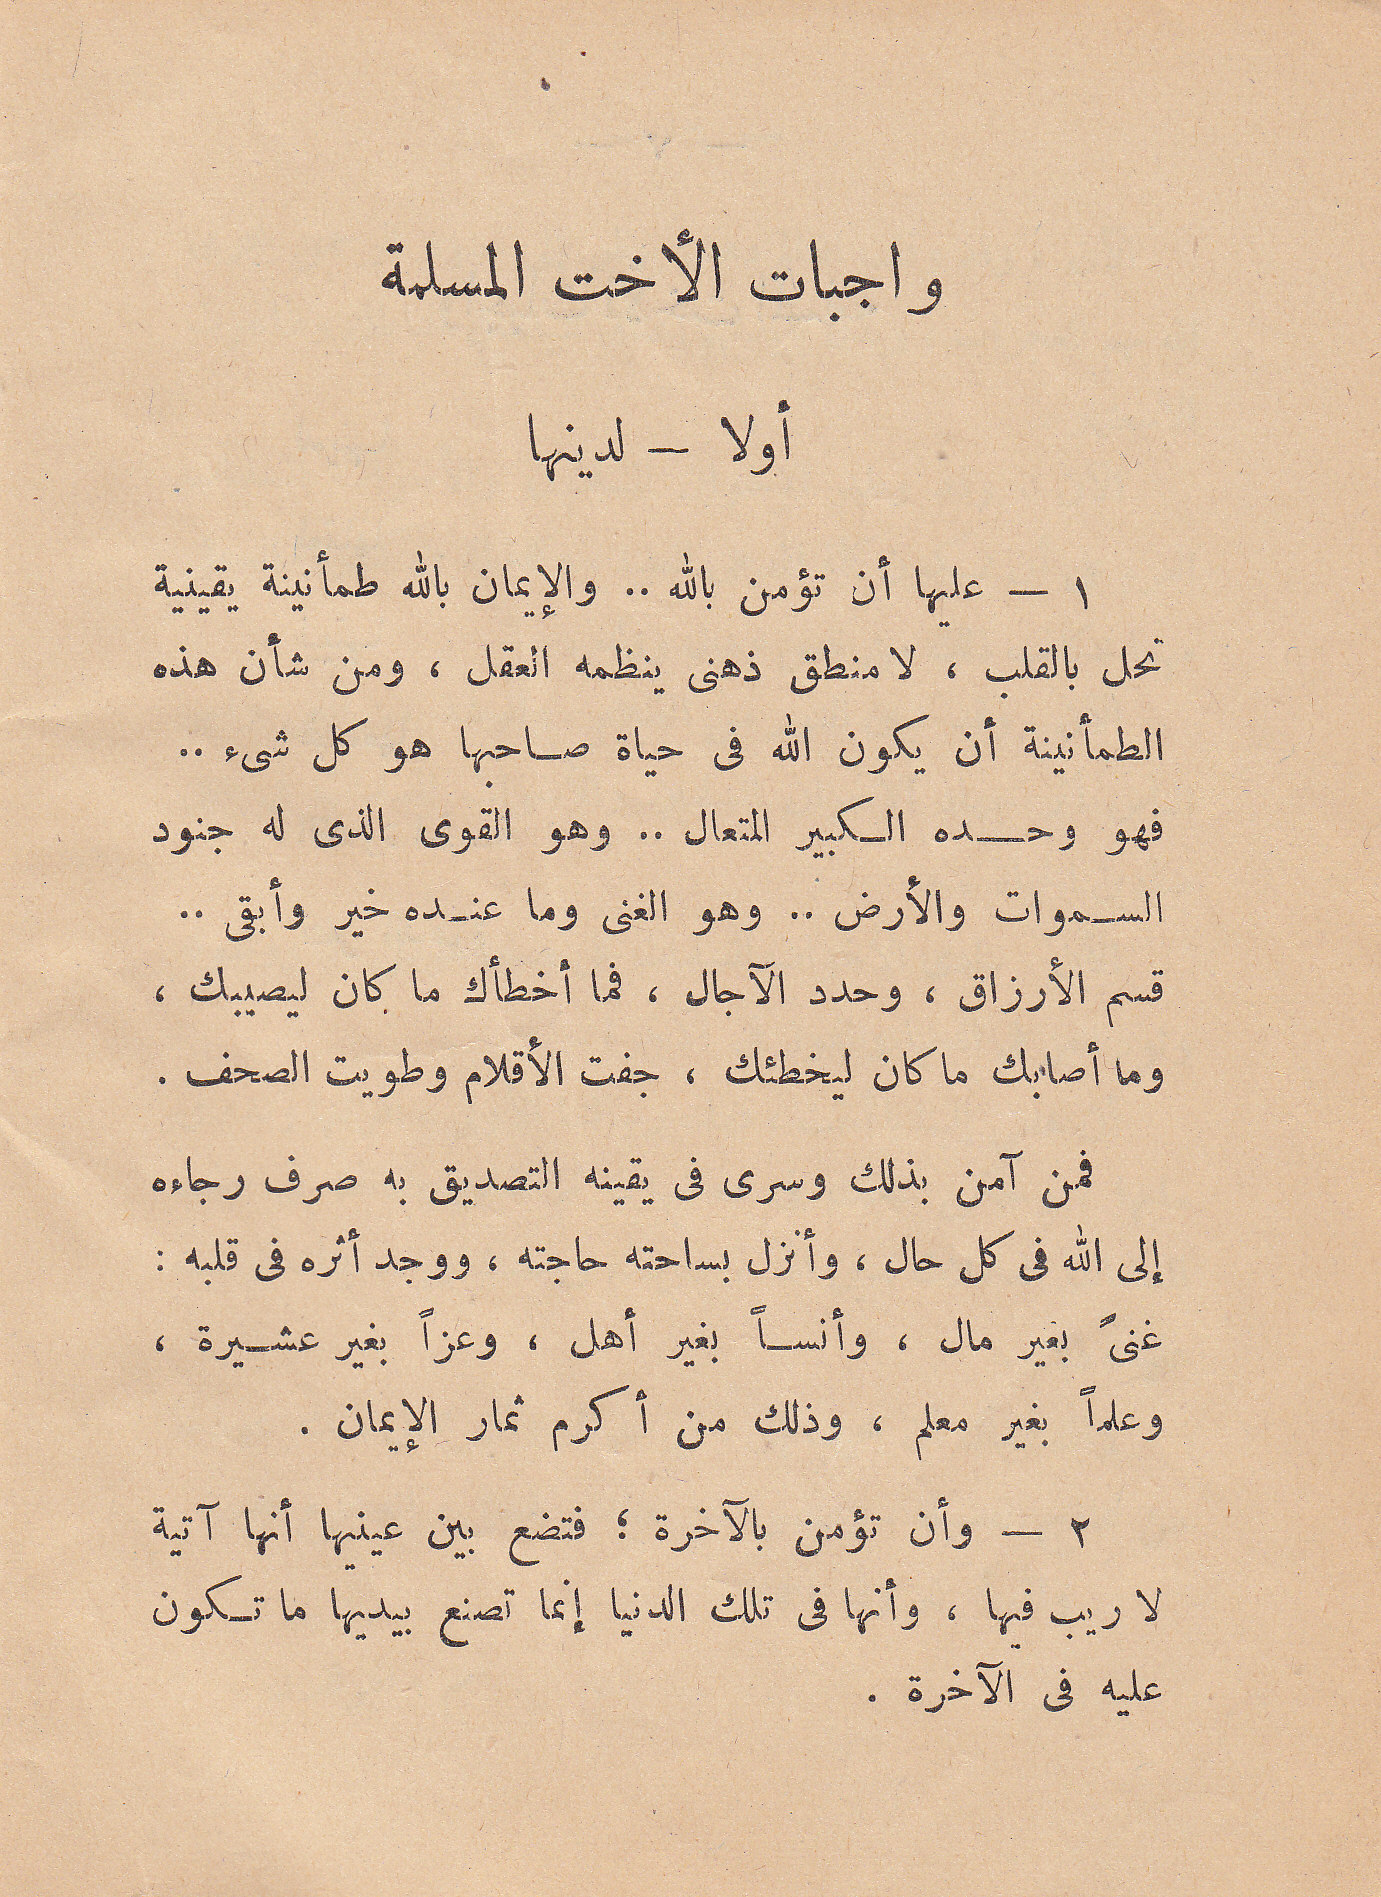 واجبات الأخت المسلمة
أولا — لدينها
١ — عليها أن تؤمن بالله .. والإيمان بالله طمأنينة يقينية
تحل بالقلب ، لا منطق ذهنى ينظمه العقل ، ومن شأن هذه
الطمأنينة أن يكون الله فى حياة صاحبها هو كل شىء ..
فهو وحده الكبير المتعال .. وهو القوى الذى له جنود
السموات والأرض .. وهو الغنى وما عنده خير وأبقى ..
قسم الأرزاق ، وحدد الآجال ، فما أخطأك ما كان ليصيبك ،
وما أصابك ما كان ليخطئك ، جفت الأقلام وطويت الصحف .
فمن آمن بذلك وسرى فى يقينه التصديق به صرف رجاءه
إلى الله فى كل حال ، وأنزل بساحته حاجته ، ووجد أثره فى قلبه :
غنىً بغير مال ، وأنساً بغير أهل ، وعزاً بغير عشيرة ،
وعلماً بغير معلم ، وذلك من أكرم ثمار الإيمان .
٢ — وأن تؤمن بالآخرة ؛ فتضع بين عينيها أنها آتية
لا ريب فيها ، وأنها فى تلك الدنيا إنما تصنع بيديها ما تكون
عليه فى الآخرة .